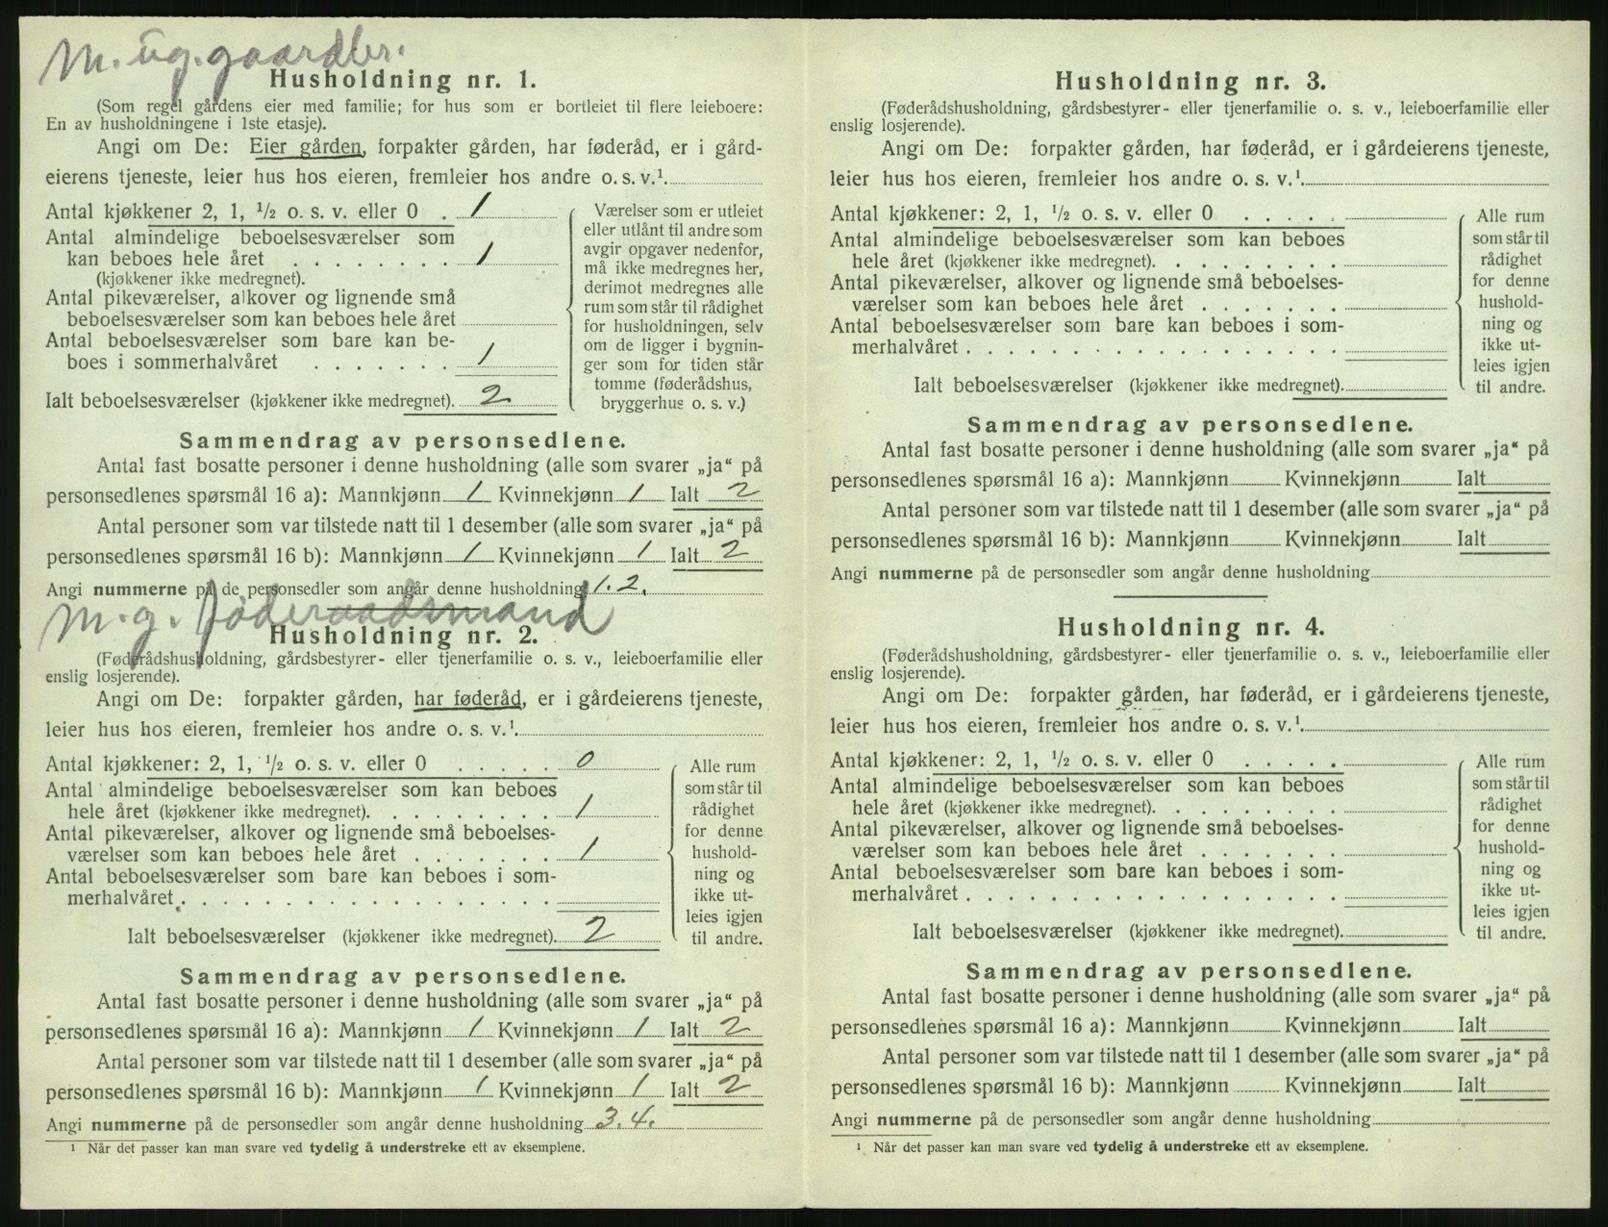 M. ug. gaardbr.
Husholdning nr. 1.
(Som regel gårdens eier med familie; for hus som er bortleiet til flere leieboere:
En av husholdningene i 1ste etasje).
Angi om De: Eier gården, forpakter gården, har føderåd, er i gård-
eierens tjeneste, leier hus hos eieren, fremleier hos andre o. s. v.¹.
Antal kjøkkener 2, 1, ½ o. s. v. eller 0 . 1
Antal almindelige beboelsesværelser som
kan beboes hele året . . . . . . . . 1
(kjøkkener ikke medregnet).
Antal pikeværelser, alkover og lignende små
beboelsesværelser som kan beboes hele året
Antal beboelsesværelser som bare kan be-
boes i sommerhalvåret . . . . . . . 1
Ialt beboelsesværelser (kjøkkener ikke medregnet). 2
Værelser som er utleiet
eller utlånt til andre som
avgir opgaver nedenfor,
må ikke medregnes her,
derimot medregnes alle
rum som står til rådighet
for husholdningen, selv
om de ligger i bygnin-
ger som for tiden står
tomme (føderådshus,
bryggerhus o. s. v.)
Sammendrag av personsedlene.
Antal fast bosatte personer i denne husholdning (alle som svarer „ja“ på
personsedlenes spørsmål 16 a): Mannkjønn 1 Kvinnekjønn 1 Ialt 2
Antal personer som var tilstede natt til 1 desember (alle som svarer „ja“ på
personsedlenes spørsmål 16 b): Mannkjønn 1 Kvinnekjønn 1 Ialt 2
Angi nummerne på de personsedler som angår denne husholdning 1. 2.
M. g. føderaadsmand
Husholdning nr. 2.
(Føderådshusholdning, gårdsbestyrer- eller tjenerfamilie o. s. v., leieboerfamilie eller
enslig losjerende).
Angi om De: forpakter gården, har føderåd, er i gårdeierens tjeneste,
leier hus hos eieren, fremleier hos andre o. s. v.¹.
Antal kjøkkener: 2, 1, ½ o. s. v. eller 0 . . . . . 0
Antal almindelige beboelsesværelser som kan beboes
hele året (kjøkkener ikke medregnet). . . . . . . . . 1
Antal pikeværelser, alkover og lignende små beboelses-
værelser som kan beboes hele året . . . . . . . 1
Antal beboelsesværelser som bare kan beboes i som-
merhalvåret . . . . . . . . . . . . . . . . . .
Ialt beboelsesværelser (kjøkkener ikke medregnet). 2
Alle rum
som står til
rådighet
for denne
hushold-
ning og
ikke ut-
leies igjen
til andre.
Sammendrag av personsedlene.
Antal fast bosatte personer i denne husholdning (alle som svarer „ja“ på
personsedlenes spørsmål 16 a): Mannkjønn 1 Kvinnekjønn 1 Ialt 2
Antal personer som var tilstede natt til 1 desember (alle som svarer „ja“ på
personsedlenes spørsmål 16 b): Mannkjønn 1 Kvinnekjønn 1 Ialt 2
Angi nummerne på de personsedler som angår denne husholdning 3. 4.
¹ Når det passer kan man svare ved tydelig å understreke ett av eksemplene.
Husholdning nr. 3.
(Føderådshusholdning, gårdsbestyrer- eller tjenerfamilie o. s. v., leieboerfamilie eller
enslig losjerende).
Angi om De: forpakter gården, har føderåd, er i gårdeierens tjeneste,
leier hus hos eieren, fremleier hos andre o. s. v.¹.
Antal kjøkkener: 2, 1, ½ o. s. v. eller 0 . . . . .
Antal almindelige beboelsesværelser som kan beboes
hele året (kjøkkener ikke medregnet). . . . . . . . .
Antal pikeværelser, alkover og lignende små beboelses-
værelser som kan beboes hele året . . . . . . .
Antal beboelsesværelser som bare kan beboes i som-
merhalvåret . . . . . . . . . . . . . . . . . .
Ialt beboelsesværelser (kjøkkener ikke medregnet).
Alle rum
som står til
rådighet
for denne
hushold-
ning og
ikke ut-
leies igjen
til andre.
Sammendrag av personsedlene.
Antal fast bosatte personer i denne husholdning (alle som svarer „ja“ på
personsedlenes spørsmål 16 a): Mannkjønn Kvinnekjønn Ialt
Antal personer som var tilstede natt til 1 desember (alle som svarer „ja“ på
personsedlenes spørsmål 16 b): Mannkjønn Kvinnekjønn Ialt
Angi nummerne på de personsedler som angår denne husholdning
Husholdning nr. 4.
(Føderådshusholdning, gårdsbestyrer- eller tjenerfamilie o. s. v., leieboerfamilie eller
enslig losjerende).
Angi om De: forpakter gården, har føderåd, er i gårdeierens tjeneste,
leier hus hos eieren, fremleier hos andre o. s. v.¹.
Antal kjøkkener: 2, 1, ½ o. s. v. eller 0 . . . . .
Antal almindelige beboelsesværelser som kan beboes
hele året (kjøkkener ikke medregnet). . . . . . . . .
Antal pikeværelser, alkover og lignende små beboelses-
værelser som kan beboes hele året . . . . . . .
Antal beboelsesværelser som bare kan beboes i som-
merhalvåret . . . . . . . . . . . . . . . . . .
Ialt beboelsesværelser (kjøkkener ikke medregnet).
Alle rum
som står til
rådighet
for denne
hushold-
ning og
ikke ut-
leies igjen
til andre.
Sammendrag av personsedlene.
Antal fast bosatte personer i denne husholdning (alle som svarer „ja“ på
personsedlenes spørsmål 16 a): Mannkjønn Kvinnekjønn Ialt
Antal personer som var tilstede natt til 1 desember (alle som svarer „ja“ på
personsedlenes spørsmål 16 b): Mannkjønn Kvinnekjønn Ialt
Angi nummerne på de personsedler som angår denne husholdning
¹ Når det passer kan man svare ved tydelig å understreke ett av eksemplene.